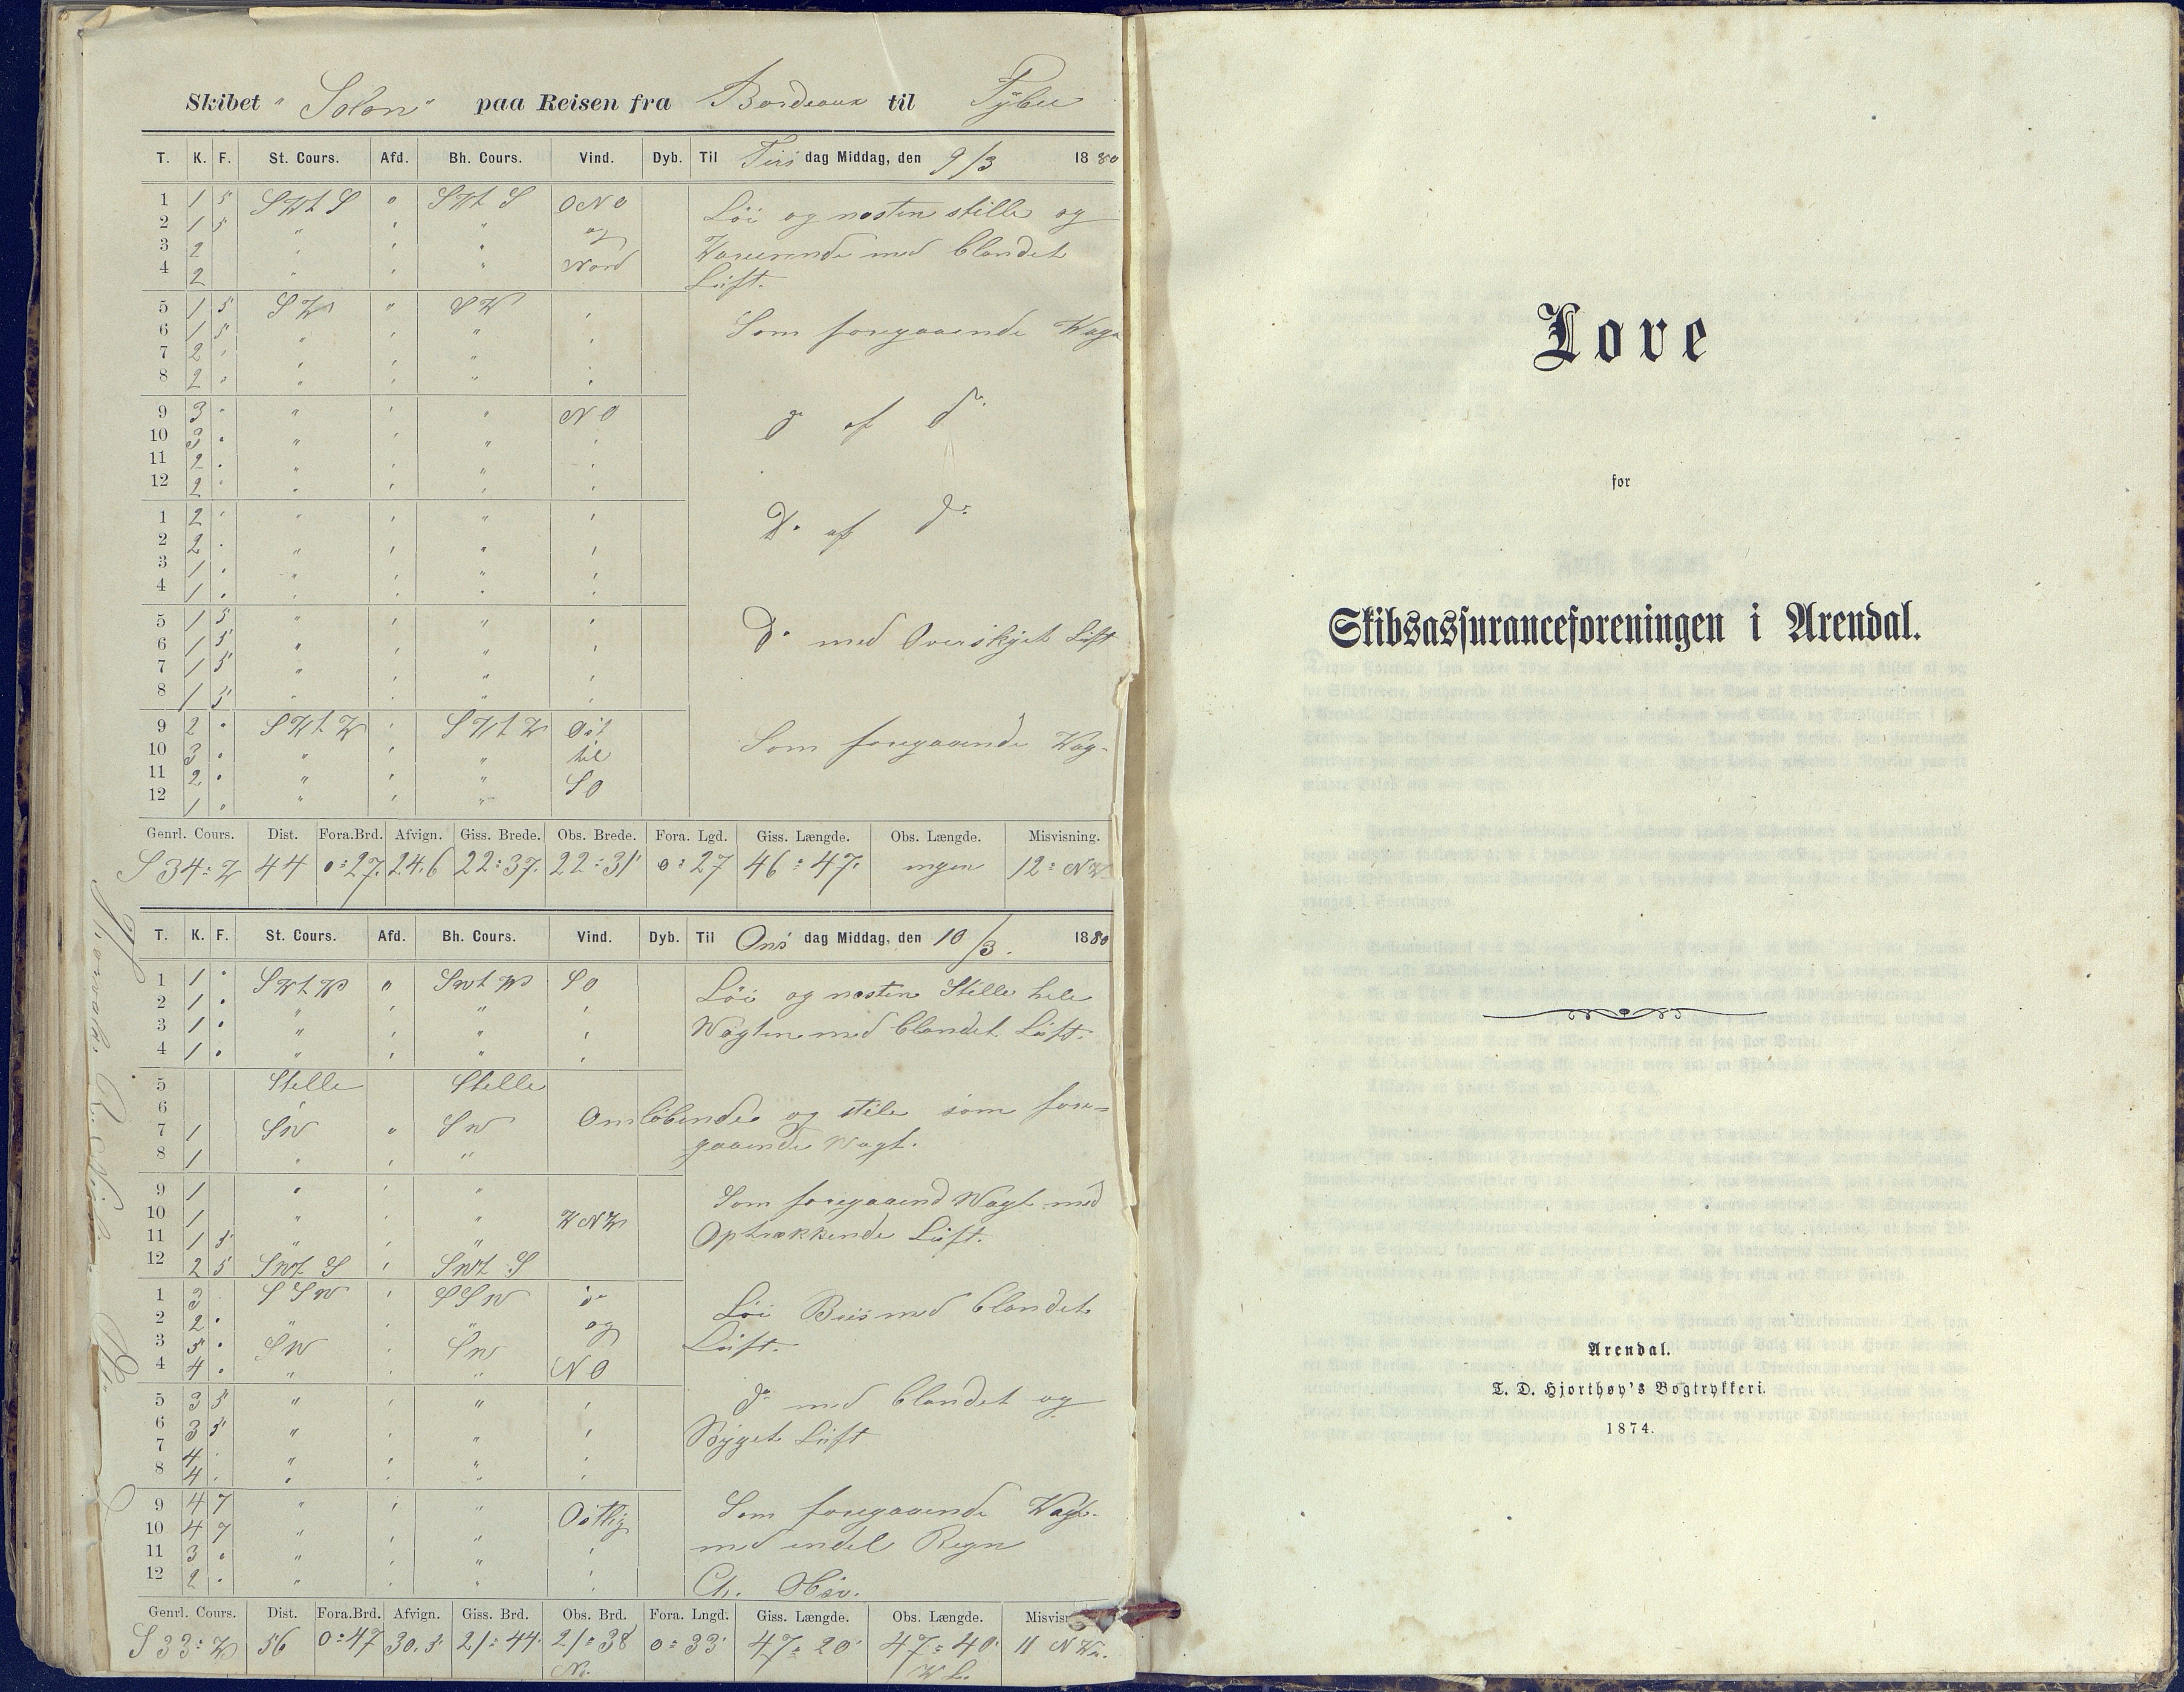 Skibet "Solon" paa Reisen fra Bordeaux til
T. K. F. St. Cours. Afd. Bh. Cours. Vind. Dyb. Til Tirsdag Middag, den 9/3 1880
1 1 5 SWt S " SWt S ONO Löi og nesten stille og
2 1 5 " " " og
3 2 " " " Nord Varierende med blandet
4 2 " " " Luft.
5 1 5 SW " SW "
6 1 5 " " " " Som foregaaende Wagt
7 2 " " " " "
8 2 " " " " "
9 3 " " " " NO do af do
10 3 " " " " "
11 2 " " " " "
12 2 " " " " "
1 2 " " " " " Do af do
2 2 " " " " "
3 1 " " " " "
4 1 " " " " "
5 1 5 " " " " Do med Overskyet Luft
6 1 5 " " " "
7 1 5 " " " "
8 1 5 " " " "
9 2 " SWt W " SWt W Ost Som foregaaende Wag-
10 3 " " " " til
11 2 " " " " SO
12 1 " " " "
Genrl. Cours. Dist. Fora.Brd. Afvign. Giss. Brede. Obs. Brede. Fora. Lgd. Giss. Længde. Obs. Længde. Misvisning.
S 34° W 44 0°27' 24.6 22°37' 22°31' 0°27 46°47' ingen 12° NW
T. K. F. St. Cours. Afd. Bh. Cours. Vind. Dyb. Til Onsdag Middag, den 10/3. 1880
1 1 " SWt W " SWt W SO Löi og nesten Stille hele
2 1 " " " " "
3 1 " " " " " Wagten med blandet Luft.
4 1 " " " " "
5 Stille Stille
6 Omlöbende og stile som fore=
7 1 SW " SW
8 1 " " " gaaende Wagt.
9 1 " " " Som foregaaend Wagt med
10 1 " " " WNW
11 1 5 " " " Optrækkende Luft.
12 2 5 SWt S " SWt S
1 3 " SSW " SSW do Löi Bris med blandet
2 2 " " " " og
3 5 " SW " SW Luft.
4 4 " " " " NO
5 3 5 " " " " do med blandet og
6 3 5 " " " " Byget Luft
7 4 " " " " "
8 4 " " " " "
9 4 7 " " " Ostlig Som foregaaende Wagt.
10 4 7 " " "
11 3 " " " " " med endel Regn
12 2 " " " " " Ch. Obsv.
Genrl. Cours. Dist. Fora.Brd. Afvign. Giss. Brd. Obs. Brd. Fora. Lngd. Giss. Længde. Obs. Længde.
S 33° W 56 0°47 30.5 21°44' 21°38 No. 0°33' 47°20' 47°40' W L.
Love
for
Skibsassuranceforeningen i Arendal.
Arendal.
T. D. Hjorthøy's Bogtrykkeri.
1874.